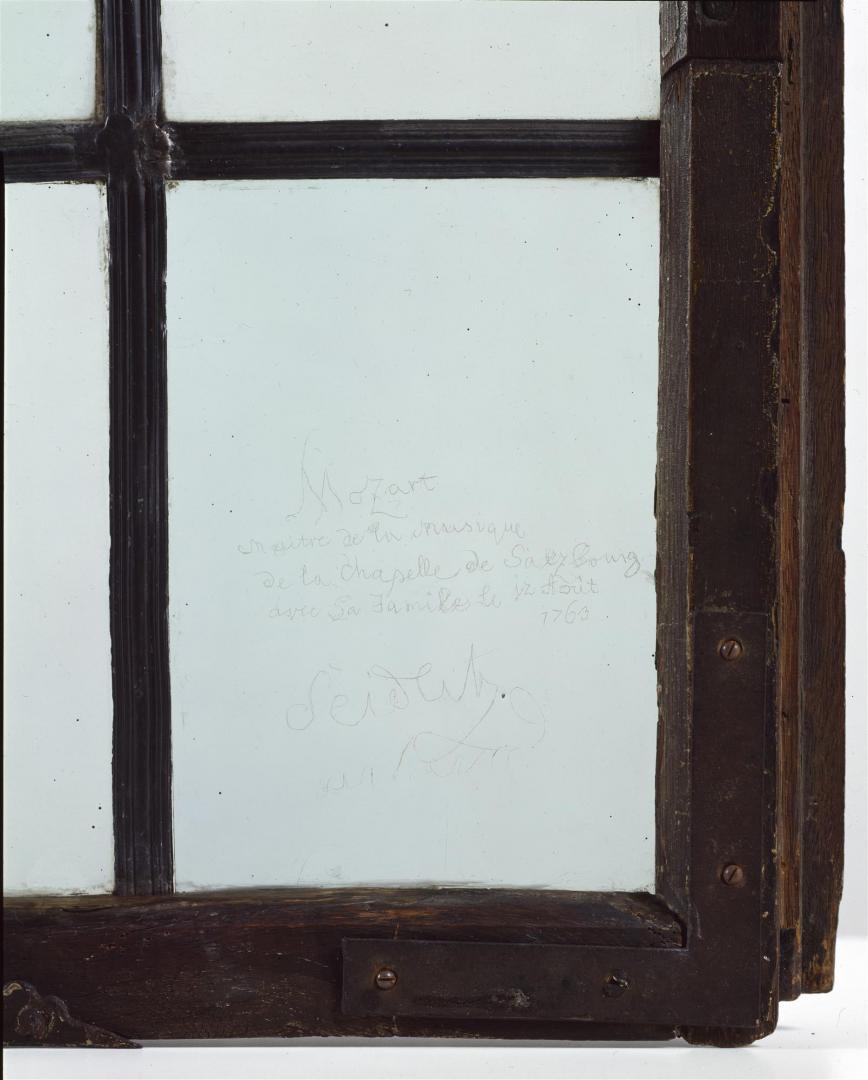 Mozart
maitre de la musique
de la Chapelle de Salzbourg
avec Sa Famille le 12 Août
1763
Seidlitz